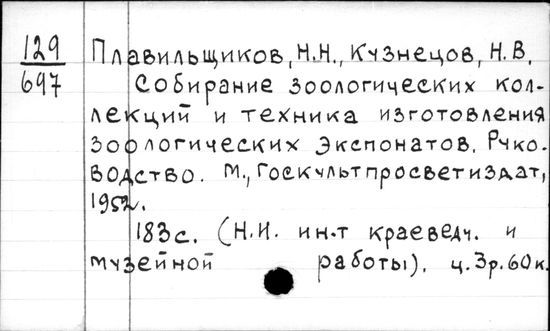 129
697
Плавильщиков, Н.Н., Кузнецов, Н.В.
Собирание зоологических кол-
лекций и техника изготовления
зоологических экспонатов. Руко-
водство. М., Госкультпросветиздат,
1952.
183с. (Н.И. ин-т краеведч. и
музейной работы). ц.3р.60к.